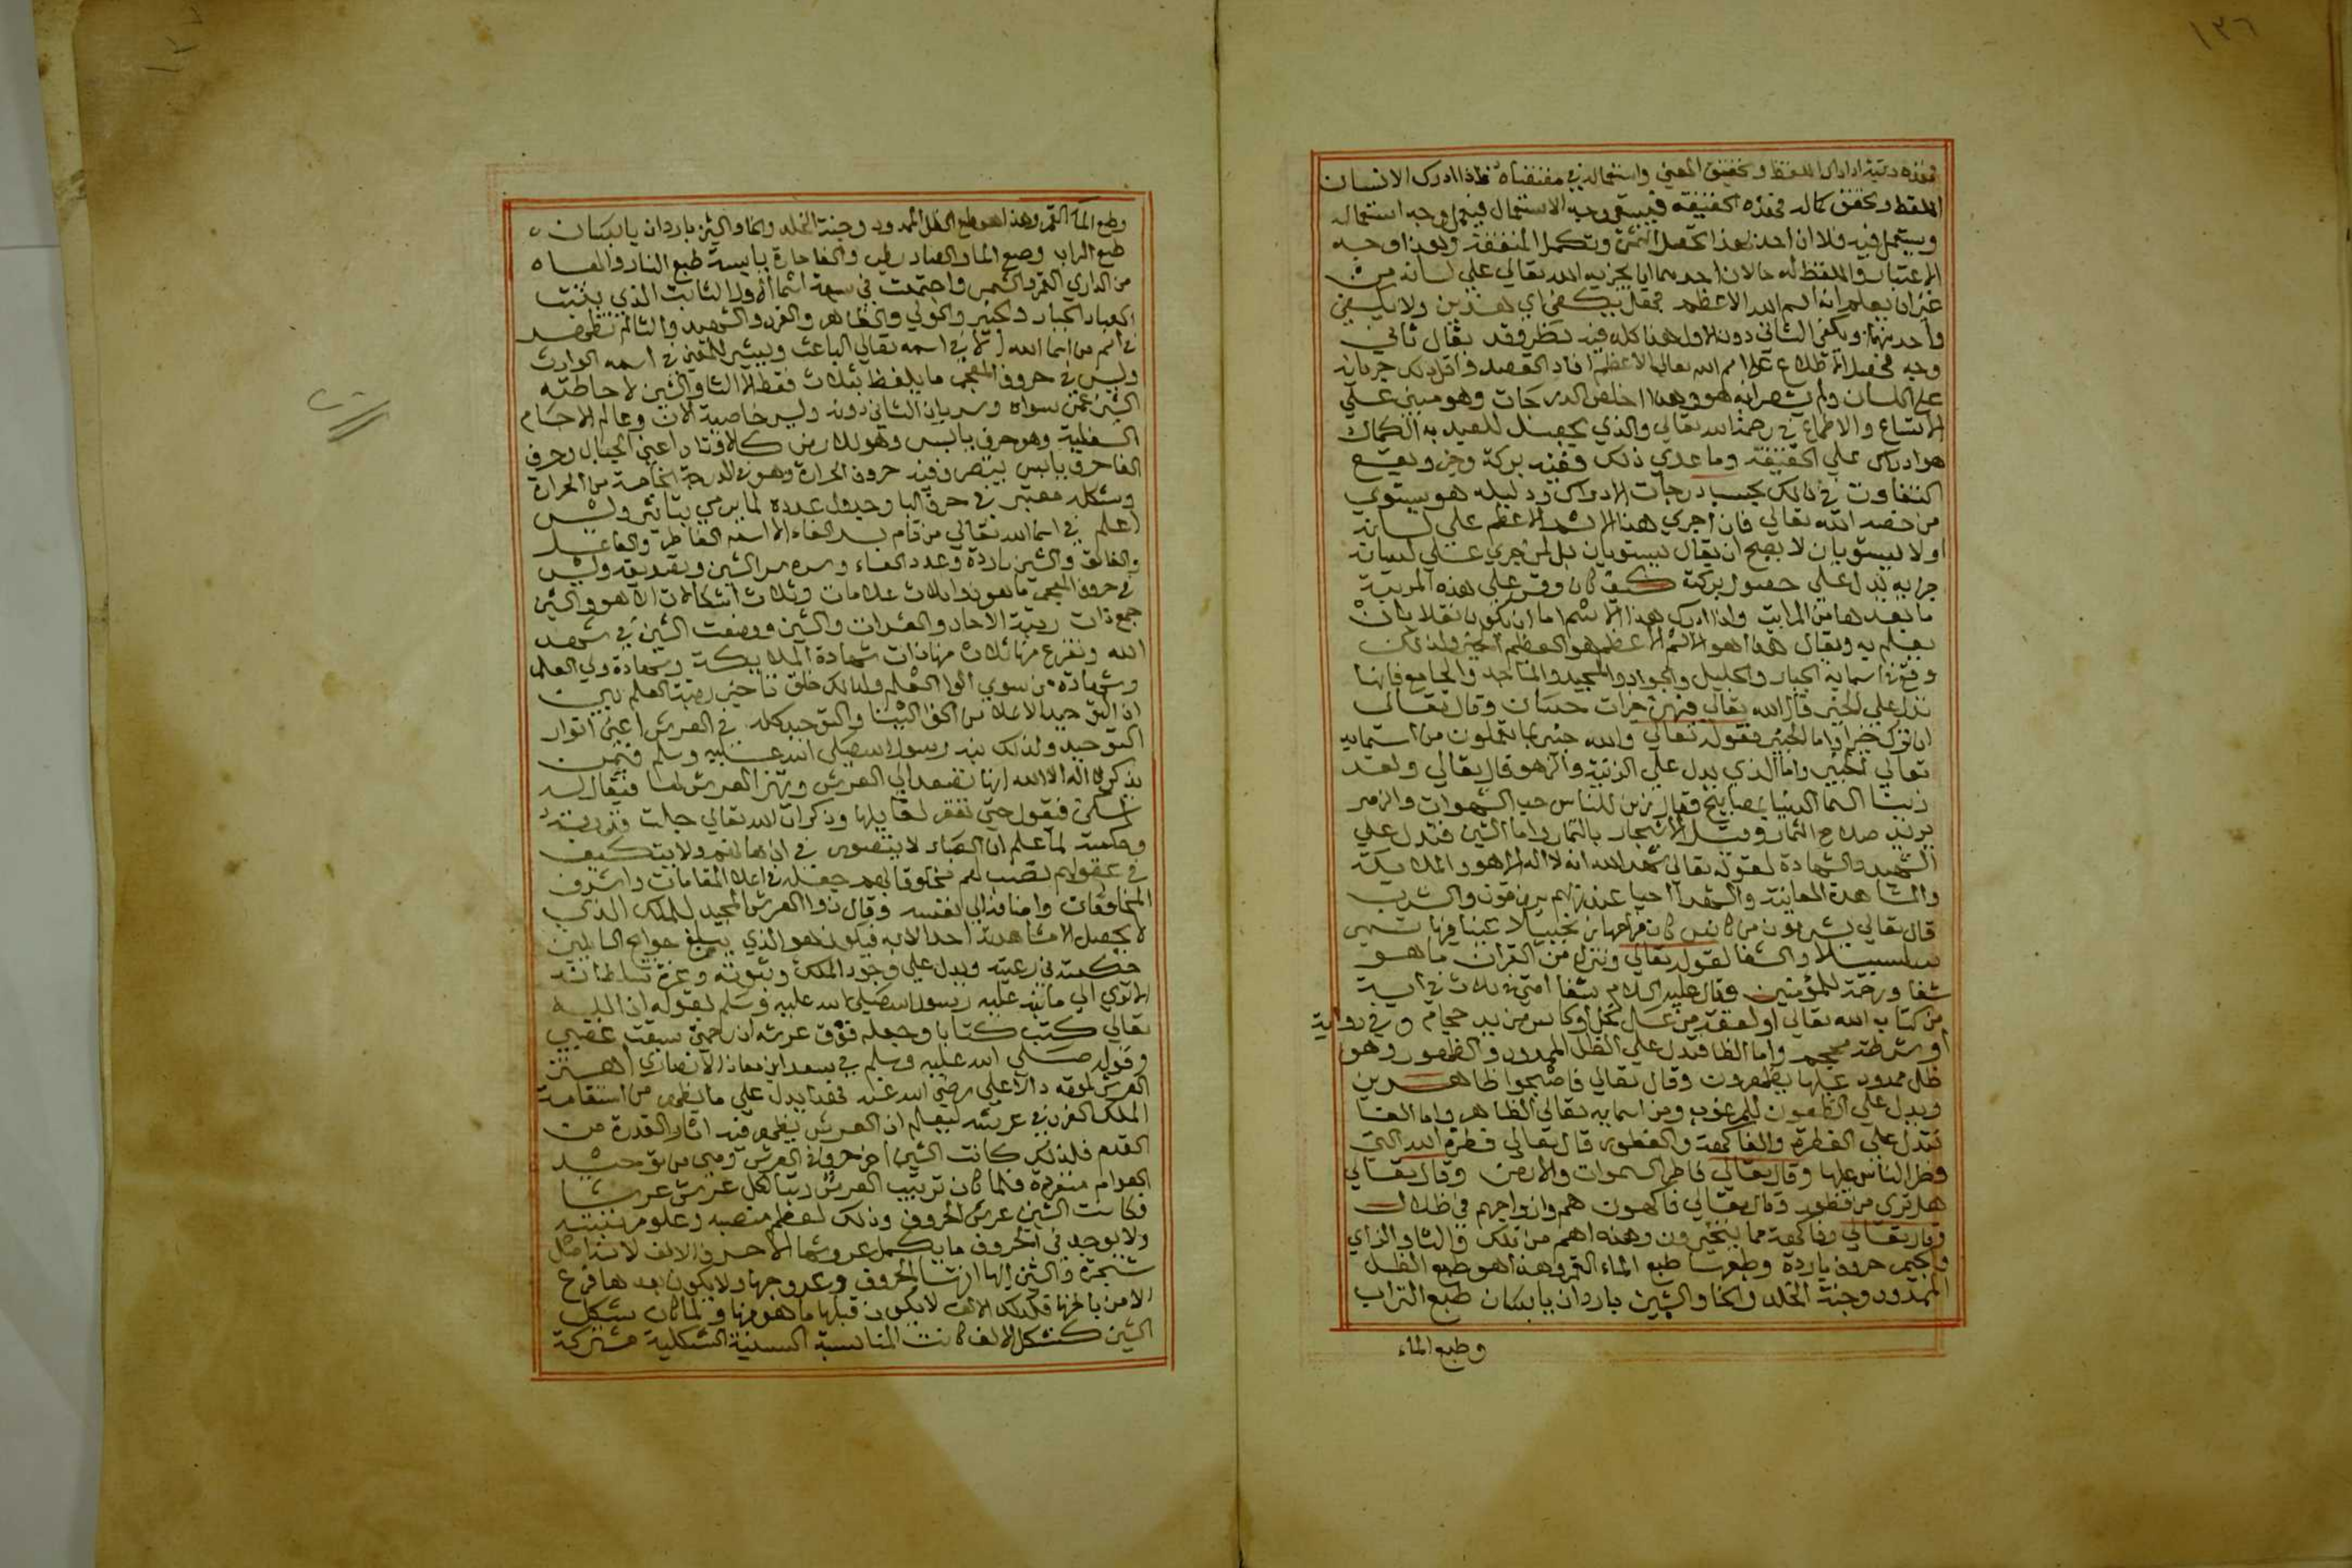 ١٣٦
فهذه رتبة ادراك اللفظ وتحقيق المعني واستعماله في مقتضاه فاذا ادرك الانسان
اللفظ وتحقق كماله فهذه الحقيقة فيستوي وجه الاستعمال فيعمل وجه استعماله
ويستعمل فيه فلا ان احد بهذا تحصل وتكمل المنفعة وبهذا وجه
الاعتبار واللفظ له حالان احدهما ان يجريه الله تعالي علي لسانه من
غير ان يعلم انه اسم الله الاعظم فهل يكفي اي هذين ولا يكفي
واحد منهما ويكفي الثاني دون الاول هذا كله فيه نظر وقد يقال ثاني
وجه فحصل الاطلاع علي اسم الله تعالي الاعظم افاد القصد واقل ذلك جريانه
علي اللسان ولم يشعر انه هو وهذا اخلص الدرجات وهو مبني علي
الاتساع والاطماع في رحمة الله تعالي والذي يحصل للعبد به الكمال
هو ادراك علي الحقيقة وما عدي ذلك ففيه بركة وخير ويقع
التفاوت في ذلك بحسب درجات الادراك ودليله هو يستوي
من خصه الله تعالي فان اجري هذا الاسم الاعظم علي لسانه
اولا يستويان لا يصح ان يقال يستويان بل لمن جري علي لسانه
جريه يدل علي حصول بركة كيف كان وقس علي هذه المرتبة
ما بعدها من المراتب واذا ادرك هذا الاسم اما ان يكون نقلا بان
يعلم به ويقال هذا هو الاسم الاعظم هو العظم الخير ولذلك
وقع في اسمايه الجبار والجليل والجواد والمجيد والماجد والجامع فانها
تدل علي الخير قال الله تعالي فيهن خيرات حسان وقال تعالي
ان ترك خيرا واما الخبير فقوله تعالي والله خبير بما تعملون من اسمايه
تعالي الخبير واما الذي يدل علي الزينة والزهو قال تعالي ولقد
زينا السما الدنيا بمصابيح فقال زين للناس حب الشهوات والزهر
يريد صلاح الثمار وقيل الاشجار بالثمار واما الشين فتدل علي
الشهيد والشهادة لقوله تعالي شهد الله انه لا اله الا هو والملايكة
والمشاهدة المعاينة والشهدا احيا عند ربهم يرزقون والشرب
قال تعالي يشربون من كاس كان مزاجها زنجبيلا عينا فيها تسمي
سلسبيلا والشفا لقوله تعالي وننزل من القران ما هو
شفا ورحمة للمؤمنين وقال عليه السلام شفا امتي في ثلاث في اية
من كتاب الله تعالي او لعقة من عسل نحل او كاس من يد حجام وفي رواية
او شرطة محجم واما الظا فتدل علي الظل الممدود والظهور وهو
ظل ممدود عليها يظهرون وقال تعالي فاصبحوا ظاهرين
ويدل علي الظهور للمرغوب ومن اسمايه تعالي الظاهر واما الفا
فتدل علي الفطرة والفاكهة والفطور قال تعالي فطرة الله التي
فطر الناس عليها وقال تعالي فاطر السموات والارض وقال تعالي
هل تري من فطور وقال تعالي فاكهون هم وازواجهم في ظلال
وقال تعالي وفاكهة مما يتخيرون وهذه اهم من تلك والثا والزاي
والجيم حروف باردة وطبعها طبع الماء القمر وهذا هو طبع الظل
الممدود وجنة الخلد والخا والشين باردان يابسان طبع التراب
وطبع الماء
وطبع الماء القمر وهذا هو طبع الظل الممدود وجنة الخلد والخا والشين باردان يابسان
طبع التراب وطبع الما والضاد رطب والفا حارة يابسة طبع النار والفاه
من الداري القمر والشمس واجتمعت في سبعة اسما الاول الثابت الذي يثبت
العباد الجبار والخبير والزكي والظاهر والفرد والشهيد والثا لم تظهر
في اسم من اسما الله الا في اسمه تعالي الباعث ويشير للمعني في اسمه الوارث
وليس في حروف المعجم ما يلفظ بثلاث فقط الا الثا والشين لاحاطته
الشين عمن سواه وسريان الثاني دونه وليس خاصية الان وعالم الاجسام
السفلية وهو حرف يابس وهو للارض كالاوتاد اعني الجبال وحرف
الفا حرف يابس يتصرف فيه حروف الحرارة وهو في الدرجة الخامسة من الحرارة
وشكله معتبر في حرف البا وجدول عدده لما يرمي بتاثير وليس
اعلم في اسما الله تعالي من قام بسر الفاء الا اسمه الفاطر والفاعل
والفالق والشين باردة وعدد الفاء وسره سر الشين وتقديقه وليس
في حروف المعجم ما هو ذو ثلاث علامات وثلاث اشكالات الا هو والشين
جمع ذات رتبة الاحاد والعشرات والشين ووضعت الشين في شهد
الله وتفرع منها ثلاث منها ذات شهادة الملايكة وشهادة اولي العلم
وشهادة من سوي اولوا العلم ولذلك خلق تاخير رتبة العلم بين
ان التوحيد الاعلا من اخفا البينا والتوحيد كله في العرش اعني انوار
التوحيد ولذلك نبه رسول الله صلي الله عليه وسلم فيمن
يذكر لا اله الا الله انها تصعد الي العرش ويهتز العرش لها فيقال له
اسكن فيقول حتي تغفر لقايلها وذكر ان الله تعالي جلت قدرته
وحكمته لما علم ان العباد لا يتصور في اذهانهم ولا يتكيف
في عقولهم نصب لهم مخلوقا لهم جعله في اعلا المقامات واشرف
المخلوقات واضافه الي نفسه وقال ذوا العرش المجيد للملك الذي
لا يحصل لا مشاهدة احد الا به فيكون هو الذي يبلغ حوايج السايلين
حكمته في رعيته ويدل علي وجود الملك وثبوته وعز سلطانه
الا تري الي ما نبه عليه رسول الله صلي الله عليه وسلم لقوله ان الله
تعالي كتب كتابا وجعله فوق عرشه ان رحمتي سبقت غضبي
وقول صلي الله عليه وسلم في سعد ابن معاذ الانصاري اهتز
العرش لموته دالا علي رضي الله عنه فهذا يدل علي ما يظهر من استقامة
الملك العزيز في عرشه ليعلم ان العرش يظهر فيه اثار القدرة من
القدم فلذلك كانت الشين اخر حروف العرش ومن توحيد
العوام منفردة فلما كان ترتيب العرش رتبا لكل عرش عرشا
فكانت الشين عرش الحروف وذلك لعظم منصبه وعلو مرتبته
ولا يوجد في الحروف ما يكمل عروشها الا حرف الالف لانه اصل
شجرة والشين اليها انتها الحروف وعروجها ولا يكون بعدها فرع
الا من باطنها فكذلك الالف لا يكون قبلها ما هو منها ولما كان شكل
الشين كشكل الالف كانت المناسبة السينية الشكلية مشتركة